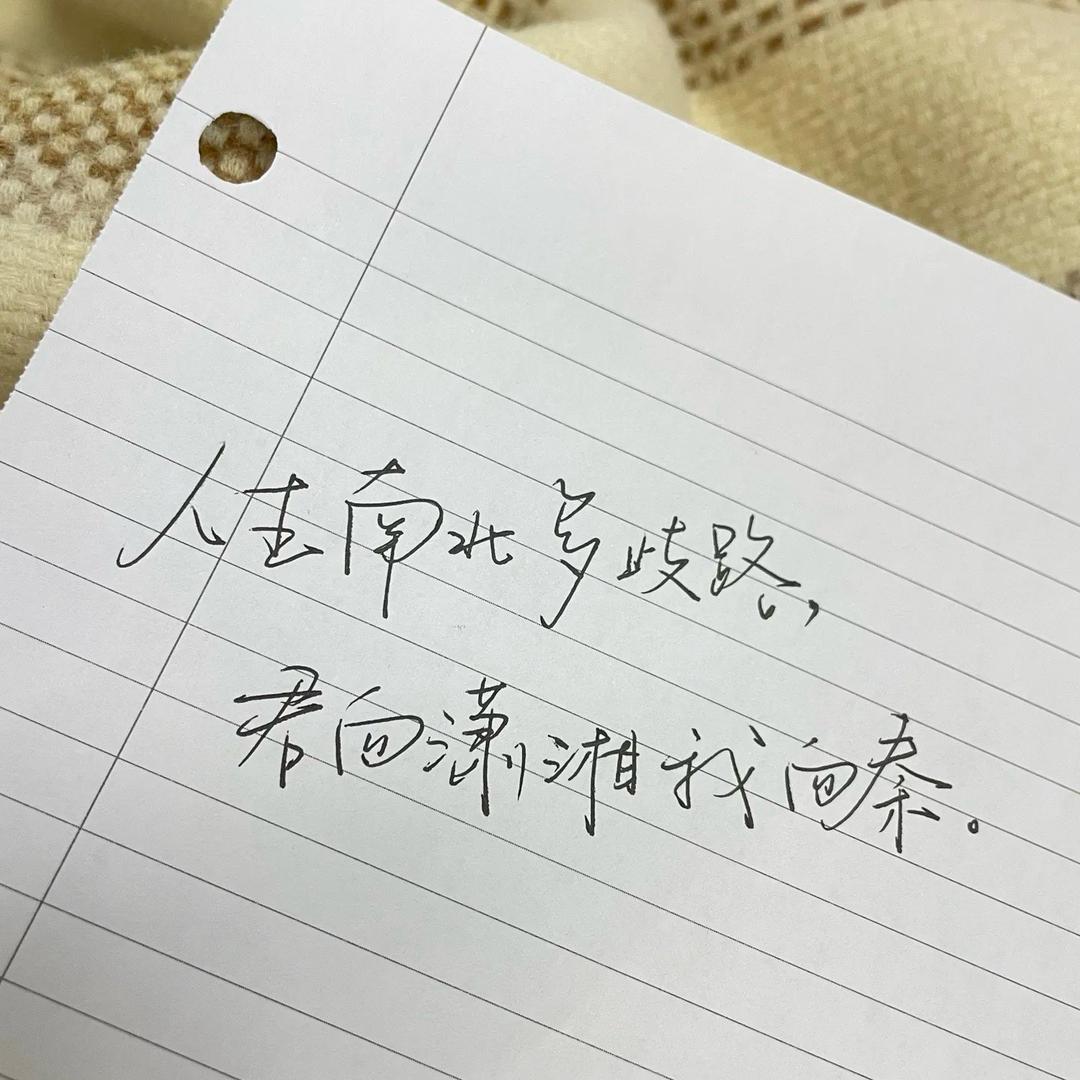 人生南北多歧路，
君向潇湘我向秦。